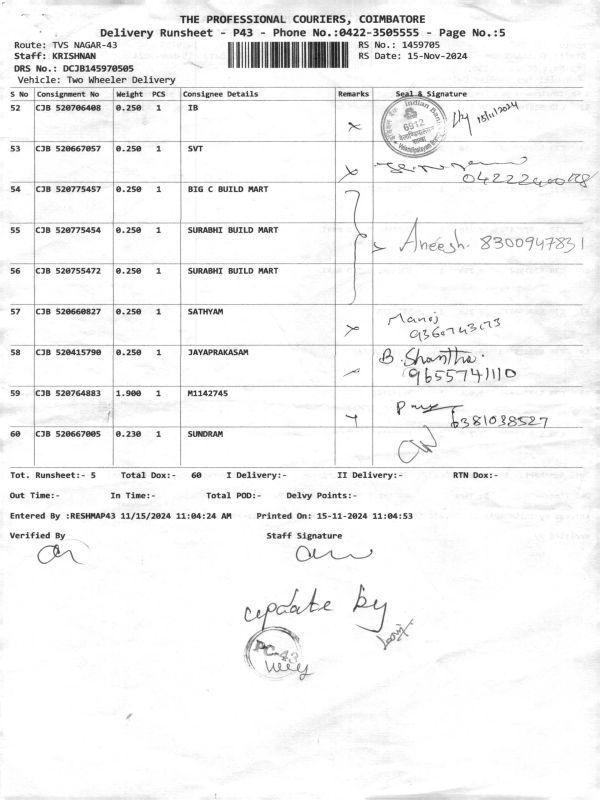 THE PROFESSIONAL COURIERS, COIMBATORE
Delivery Runsheet - P43 - Phone No.:0422-3505555 - Page No.:5
Route: TVS NAGAR-43 RS No.: 1459705
Staff: KRISHNAN RS Date: 15-Nov-2024
DRS No.: DCJB145970505
Vehicle: Two Wheeler Delivery
S No Consignment No Weight PCS Consignee Details Remarks Seal & Signature
52 CJB 520706408 0.250 1 IB Indian Bank 6912 15/11/2024
53 CJB 520667057 0.250 1 SVT
54 CJB 520775457 0.250 1 BIG C BUILD MART
55 CJB 520775454 0.250 1 SURABHI BUILD MART Aneesh. 8300947831
56 CJB 520755472 0.250 1 SURABHI BUILD MART
57 CJB 520660827 0.250 1 SATHYAM Manoj
58 CJB 520415790 0.250 1 JAYAPRAKASAM B. Shantha.
9655741110
59 CJB 520764883 1.900 1 M1142745 6381038527
60 CJB 520667005 0.230 1 SUNDRAM
Tot. Runsheet:- 5 Total Dox:- 60 I Delivery:- II Delivery:- RTN Dox:-
Out Time:- In Time:- Total POD:- Delvy Points:-
Entered By :RESHMAP43 11/15/2024 11:04:24 AM Printed On: 15-11-2024 11:04:53
Verified By Staff Signature
update by
PC-43